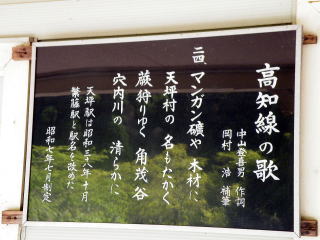 高知線の歌
中山登喜男 作詞
岡村 浩 補筆
二四、マンガン礦や 木材に
天坪村の 名もたかく
蕨狩りゆく 角茂谷
穴内川の 清らかに
天坪駅は昭和三八年十月
繁藤駅と駅名を改めた
昭和七年七月制定